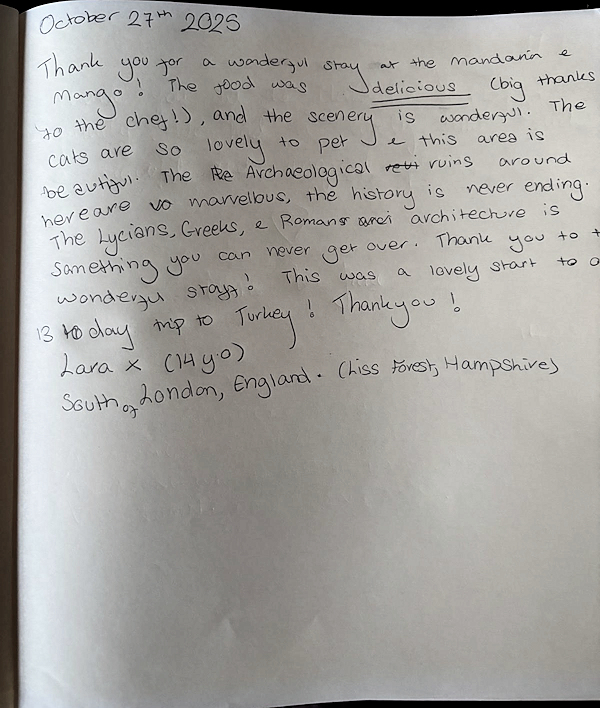 October 27th 2025
Thank you for a wonderful stay at the Mandarin &
Mango! The food was delicious (big thanks
to the chef!), and the scenery is wonderful. The
cats are so lovely to pet & this area is
beautiful. The Archaeological ruins around
here are so marvellous, the history is never ending.
The Lycians, Greeks, & Romans architecture is
something you can never get over. Thank you to
wonderful staff! This was a lovely start to a
13 day trip to Turkey! Thankyou!
Lara x (14 y.o)
South of London, England. (Liss Forest, Hampshire)